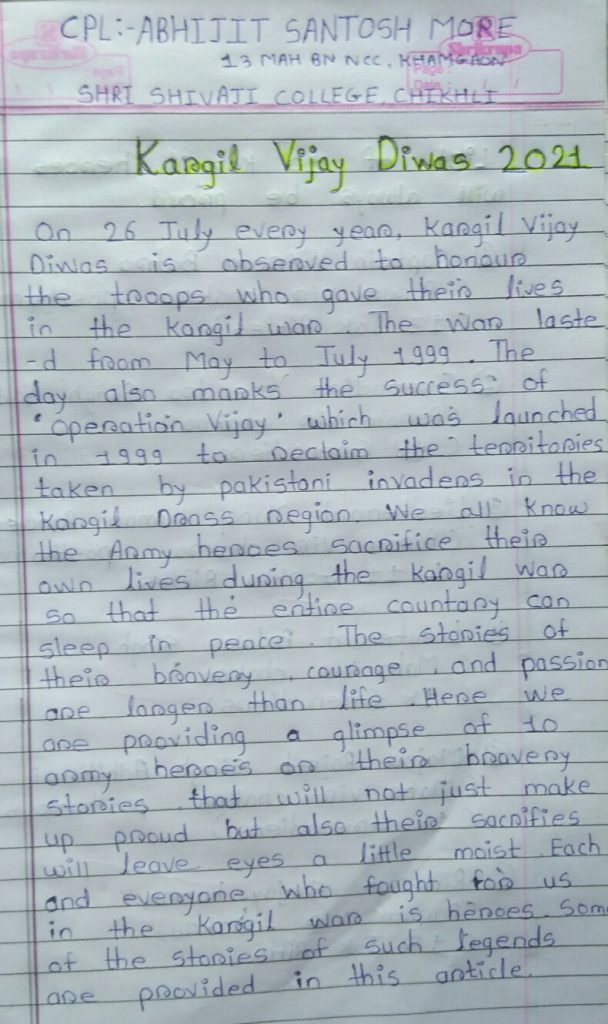 CPL:-ABHIJIT SANTOSH MORE
13 MAH BN NCC, KHAMGAON
SHRI SHIVAJI COLLEGE, CHIKHLI
Shrikrupa
Page:
Kargil Vijay Diwas 2021
On 26 July every year, Kargil Vijay
Diwas is observed to honour
the troops who gave their lives
in the Kargil war. The war laste
-d from May to July 1999. The
day also marks the success of
'Operation Vijay' which was launched
in 1999 to reclaim the territories
taken by pakistani invaders in the
Kargil Drass region. We all know
the Army heroes sacrifice their
own lives during the Kargil war
so that the entire countary can
sleep in peace. The stories of
their bravery, courage, and passion
are larger than life. Here we
are providing a glimpse of 10
army heroes or their bravery
stories that will not just make
up proud but also their sacrifies
will leave eyes a little moist. Each
and everyone who fought for us
in the Kargil war is heroes. Som
of the stories of such legends
are provided in this article.